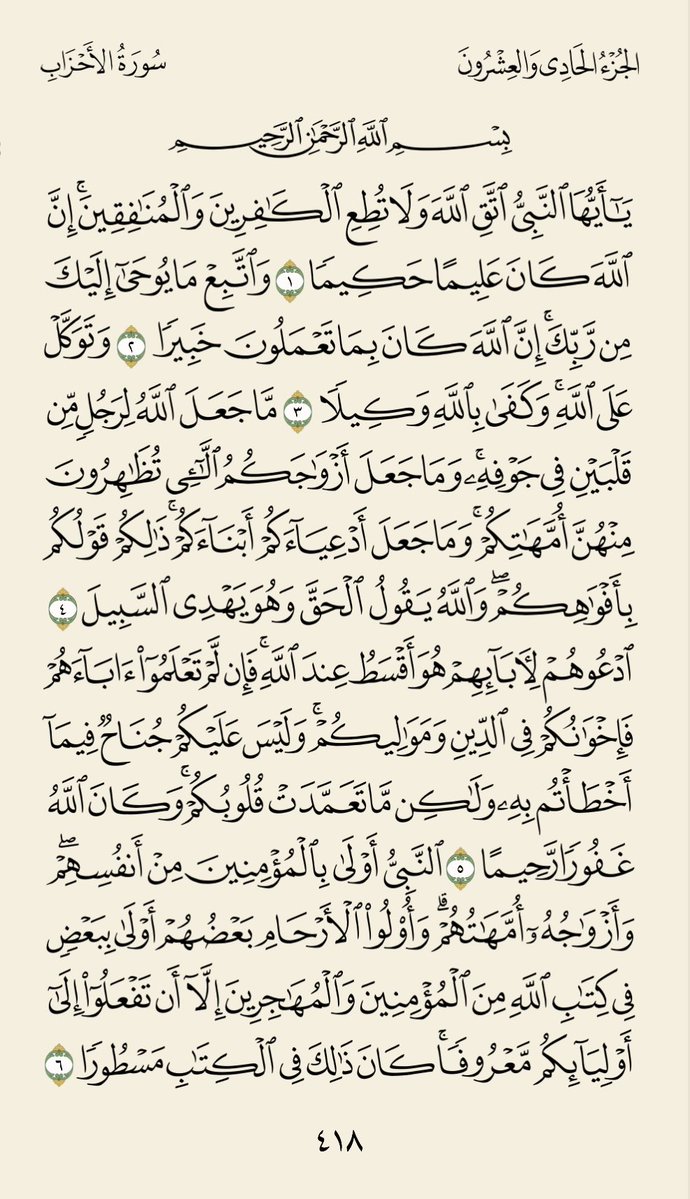 الجُزْءُ الحَادِي وَالعِشْرُونَ
سُورَةُ الأَحْزَابِ
بِسْمِ ٱللَّهِ ٱلرَّحْمَٰنِ ٱلرَّحِيمِ
يَٰٓأَيُّهَا ٱلنَّبِىُّ ٱتَّقِ ٱللَّهَ وَلَا تُطِعِ ٱلْكَٰفِرِينَ وَٱلْمُنَٰفِقِينَۚ إِنَّ
ٱللَّهَ كَانَ عَلِيمًا حَكِيمٗا ١ وَٱتَّبِعْ مَا يُوحَىٰٓ إِلَيْكَ
مِن رَّبِّكَۚ إِنَّ ٱللَّهَ كَانَ بِمَا تَعْمَلُونَ خَبِيرٗا ٢ وَتَوَكَّلْ
عَلَى ٱللَّهِۚ وَكَفَىٰ بِٱللَّهِ وَكِيلٗا ٣ مَّا جَعَلَ ٱللَّهُ لِرَجُلٖ مِّن
قَلْبَيْنِ فِى جَوْفِهِۦۚ وَمَا جَعَلَ أَزْوَٰجَكُمُ ٱلَّٰٓـِٔى تُظَٰهِرُونَ
مِنْهُنَّ أُمَّهَٰتِكُمْۚ وَمَا جَعَلَ أَدْعِيَآءَكُمْ أَبْنَآءَكُمْۚ ذَٰلِكُمْ قَوْلُكُم
بِأَفْوَٰهِكُمْۖ وَٱللَّهُ يَقُولُ ٱلْحَقَّ وَهُوَ يَهْدِى ٱلسَّبِيلَ ٤
ٱدْعُوهُمْ لِأٓبَآئِهِمْ هُوَ أَقْسَطُ عِندَ ٱللَّهِۚ فَإِن لَّمْ تَعْلَمُوٓا۟ ءَابَآءَهُمْ
فَإِخْوَٰنُكُمْ فِى ٱلدِّينِ وَمَوَٰلِيكُمْۚ وَلَيْسَ عَلَيْكُمْ جُنَاحٞ فِيمَآ
أَخْطَأْتُم بِهِۦ وَلَٰكِن مَّا تَعَمَّدَتْ قُلُوبُكُمْۚ وَكَانَ ٱللَّهُ
غَفُورٗا رَّحِيمًا ٥ ٱلنَّبِىُّ أَوْلَىٰ بِٱلْمُؤْمِنِينَ مِنْ أَنفُسِهِمْۖ
وَأَزْوَٰجُهُۥٓ أُمَّهَٰتُهُمْۗ وَأُو۟لُوا۟ ٱلْأَرْحَامِ بَعْضُهُمْ أَوْلَىٰ بِبَعْضٖ
فِى كِتَٰبِ ٱللَّهِ مِنَ ٱلْمُؤْمِنِينَ وَٱلْمُهَٰجِرِينَ إِلَّآ أَن تَفْعَلُوٓا۟ إِلَىٰٓ
أَوْلِيَآئِكُم مَّعْرُوفٗاۚ كَانَ ذَٰلِكَ فِى ٱلْكِتَٰبِ مَسْطُورٗا ٦
٤١٨